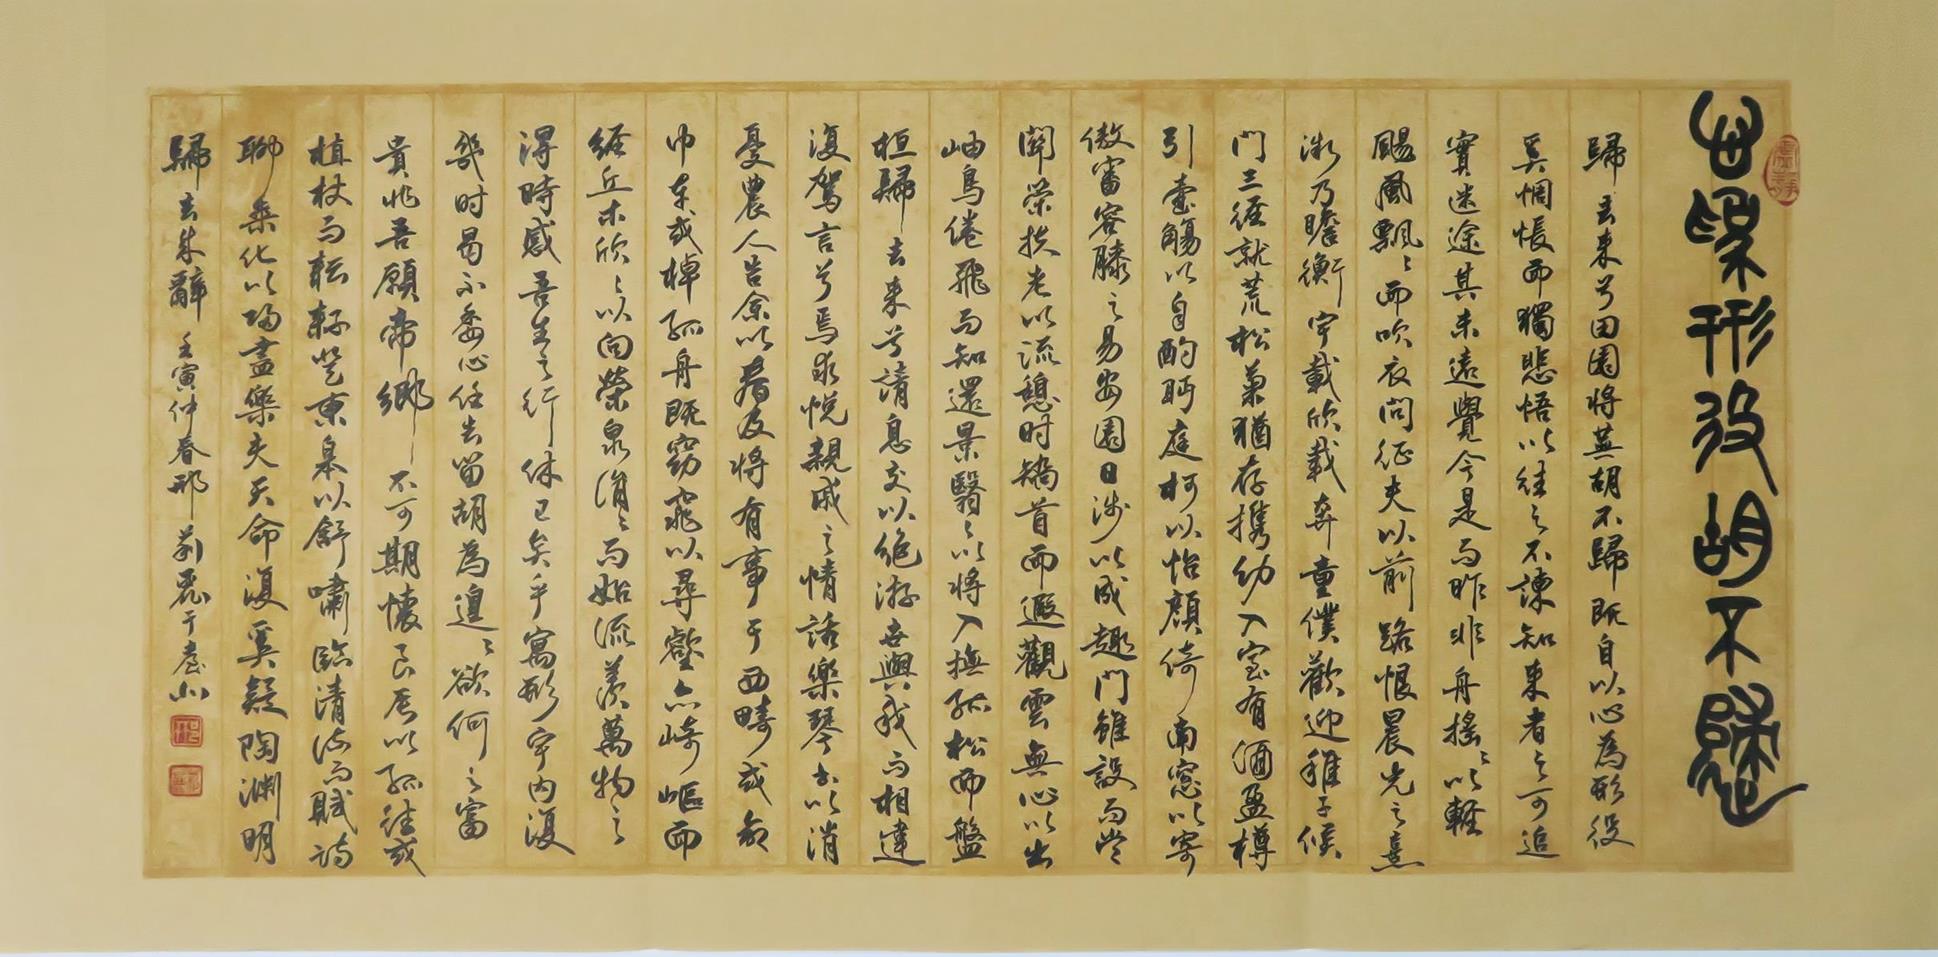 形役胡不歸
歸去来兮田園将蕪胡不歸既自以心為形役
奚惆悵而獨悲悟以往之不諫知来者之可追
實迷途其未遠覺今是而昨非舟摇〻以輕
颺風飄〻而吹衣问征夫以前路恨晨光之熹
微乃瞻衡宇載欣載奔童僕歡迎稚子候
门三徑就荒松菊猶存携幼入室有酒盈樽
引壺觴以自酌眄庭柯以怡顔倚南窓以寄
傲審容膝之易安園日涉以成趣门雖設而常
關策扶老以流憩时矯首而遐觀雲無心以出
岫鳥倦飛而知還景翳〻以将入撫孤松而盤
桓歸去来兮請息交以绝游世與我而相違
復駕言兮焉求悦親戚之情話樂琴書以消
憂農人告余以春及将有事于西疇或命
巾車或棹孤舟既窈窕以尋壑亦崎嶇而
經丘木欣〻以向榮泉涓〻而始流羡萬物之
得時感吾生之行休已矣乎寓形宇内復
幾时曷不委心任去留胡為遑〻欲何之富
貴非吾願帝鄉不可期懷良辰以孤往或
植杖而耘耔登東皋以舒嘯臨清流而賦诗
聊乘化以歸盡樂夫天命復奚疑陶渊明
歸去来辭壬寅仲春邢莉麗于